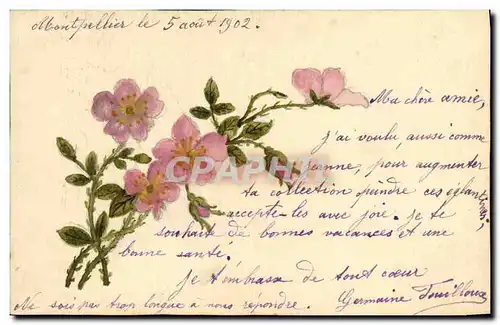 Montpellier le 5 août 1902.
Ma chère amie,
j'ai voulu, aussi comme
Jeanne, pour augmenter
ta collection peindre ces églantines,
accepte-les avec joie. Je te
souhaite de bonnes vacances et une
bonne santé.
Je t'embrasse de tout cœur
Ne sois pas trop longue à nous répondre. Germaine